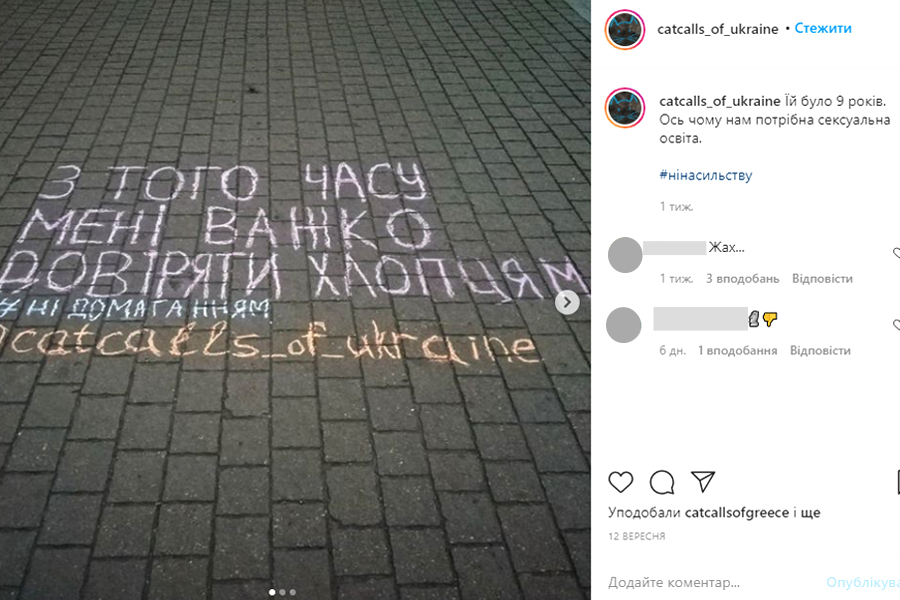 З ТОГО ЧАСУ
МЕНІ ВАЖКО
ДОВІРЯТИ ХЛОПЦЯМ
#НІДОМАГАННЯМ
@catcalls_of_ukraine
catcalls_of_ukraine • Стежити
catcalls_of_ukraine Їй було 9 років.
Ось чому нам потрібна сексуальна
освіта.
#нінасильству
1 тиж.
Жах...
1 тиж. 3 вподобань Відповісти
6 дн. 1 вподобання Відповісти
Уподобали catcallsofgreece і ще
12 ВЕРЕСНЯ
Додайте коментар...
Опублікува